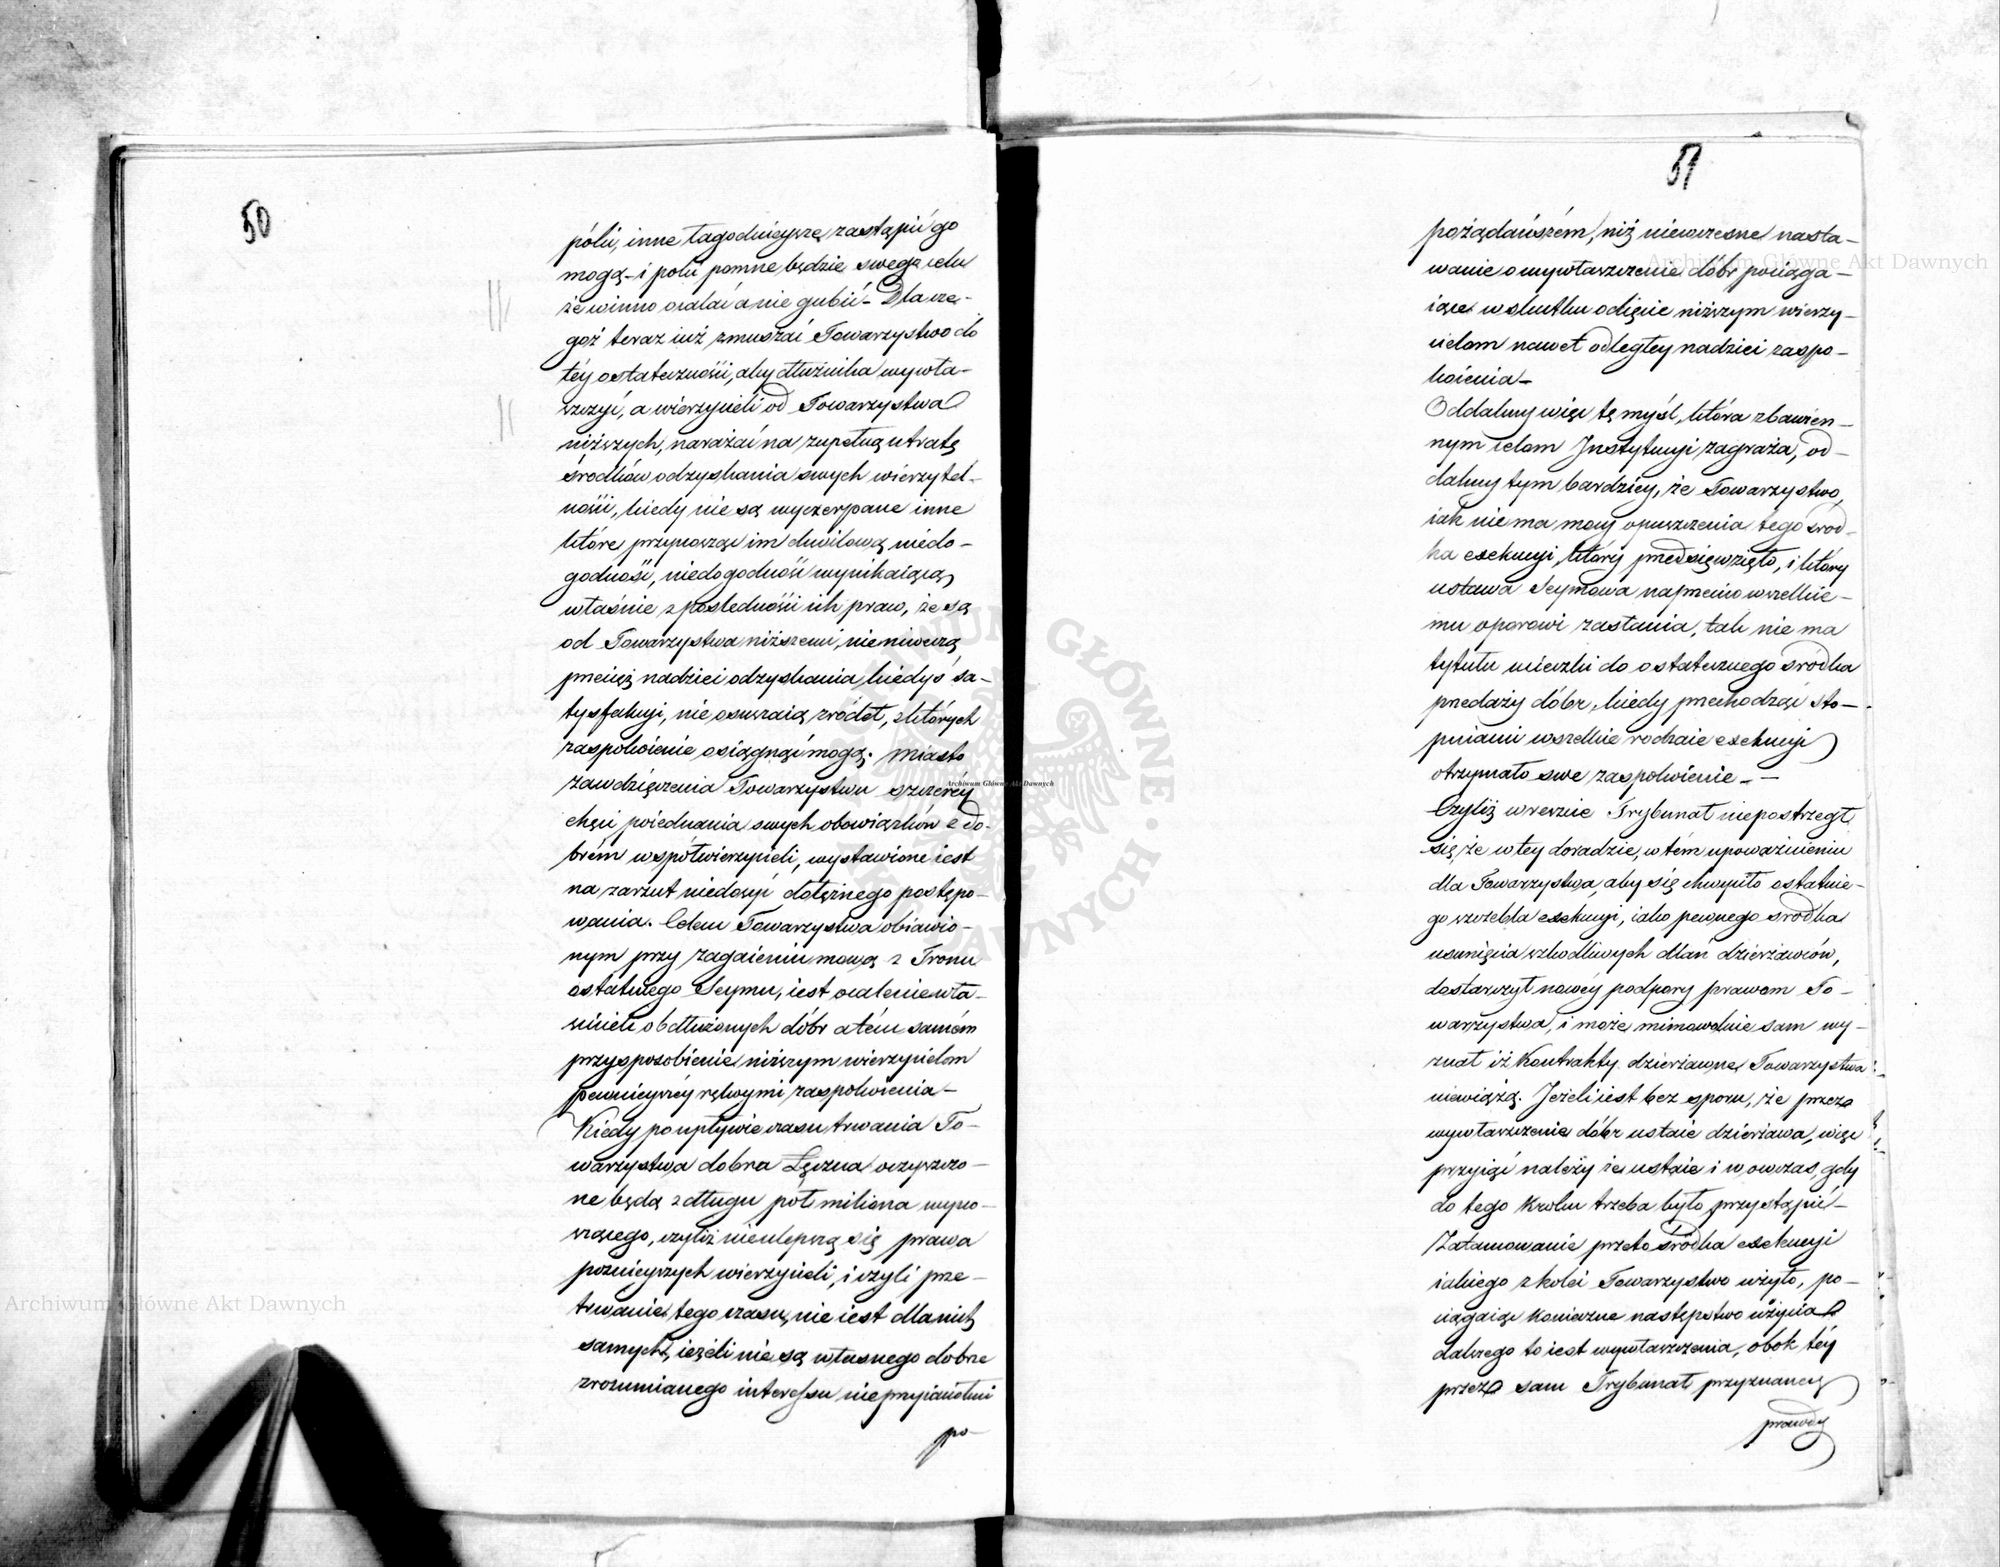 50
póki, inne łagodnieysze zastąpić go
mogą – i póki pomne będzie swego celu
że winno ocalać a nie gubić – Dla cze-
goż teraz iuż zmuszać Towarzystwo do
téy ostateczności, aby dłużnika wywła-
szczyć, a wierzycieli od Towarzystwa
niższych, narażać na zupełną utratę
środków odzyskania swych wierzytel-
ności, kiedy nie są wyczerpane inne
które przynosząc im chwilową niedo-
godność, niedogodność wynikaiącą
właśnie z pośledności ich praw, że są
od Towarzystwa niższemi, nie niweczą
przecież nadziei odzyskania kiedyś sa-
tysfakcyi, nie osuszaią źródeł, z których
zaspokoienie osiągnąć mogą. Miasto
zawdzięczenia Towarzystwu szczeréy
chęci poiednania swych obowiązków z do-
brém współwierzycieli, wystawione iest
na zarzut niedosyć dołężnego postępo-
wania. Celem Towarzystwa obiawio-
nym przy zagaieniu mową z Tronu
ostatniego Seymu, iest ocalenie wła-
ścicieli obdłużonych dóbr a tém samém
przysposobienie niższym wierzycielom
pewnieyszéy rękoymi zaspokoienia –
Kiedy po upływie czasu trwania To-
warzystwa dobra Łęczna oczyszczo-
ne będą z długu pół miliona wyno-
szącego, czyliż nieulepszą się prawa
poźnieyszych wierzycieli, i czyli prze-
trwanie tego czasu, nie iest dla nich
samych, ieżeli nie są własnego dobrze
zrozumianego interessu nieprzyiaciołmi
po-
51
pożądańszém, niż niewczesne nasta-
wanie o wywłaszczenie dóbr pociąga-
iące w skutku odięcie niższym wierzy-
cielom nawet odległey nadziei zaspo-
koienia –
Oddalmy więc tę myśl, która zbawien-
nym celom Instytucyi zagraża, od-
dalmy tym bardziey, że Towarzystwo,
iak nie ma mocy opuszczenia tego środ-
ka exekucyi, który przedsięwzięło, i który
ustawa Seymowa naprzeciw wszelkie-
mu oporowi zasłania, tak nie ma
tytułu ucieczki do ostatecznego śródka
przedaży dóbr, kiedy przechodząc sto-
pniami wszelkie rodzaie exekucyi
otrzymało swe zaspokoienie – –
Czyliż wreszcie Trybunał niepostrzegł
się, że w tey doradzie, w tém upoważnieniu
dla Towarzystwa, aby się chwyciło ostatnie-
go szczebla exekucyi, iako pewnego srodka
usunięcia szkodliwych dlań dzierżawców,
dostarczył nowéy podpory prawom To-
warzystwa, i może mimowolnie sam wy-
znał iż Kontrakty dzierżawne Towarzystwa
niewiążą. Jeżeli iest bez sporu, że przez
wywłaszczenie dóbr ustaie dzierżawa, więc
przyiąć należy że ustaie i wowczas, gdy
do tego kroku trzeba było przystąpić –
Zatamowanie przeto śródka exekucyi
iakiego z kolei Towarzystwo użyło, po-
ciągaiąc konieczne następstwo użycia
dalszego to iest wywłaszczenia, obok téy
przez sam Trybunał przyznaney
prawdy
Archiwum Główne Akt Dawnych
Archiwum Główne Akt Dawnych
Archiwum Główne Akt Dawnych